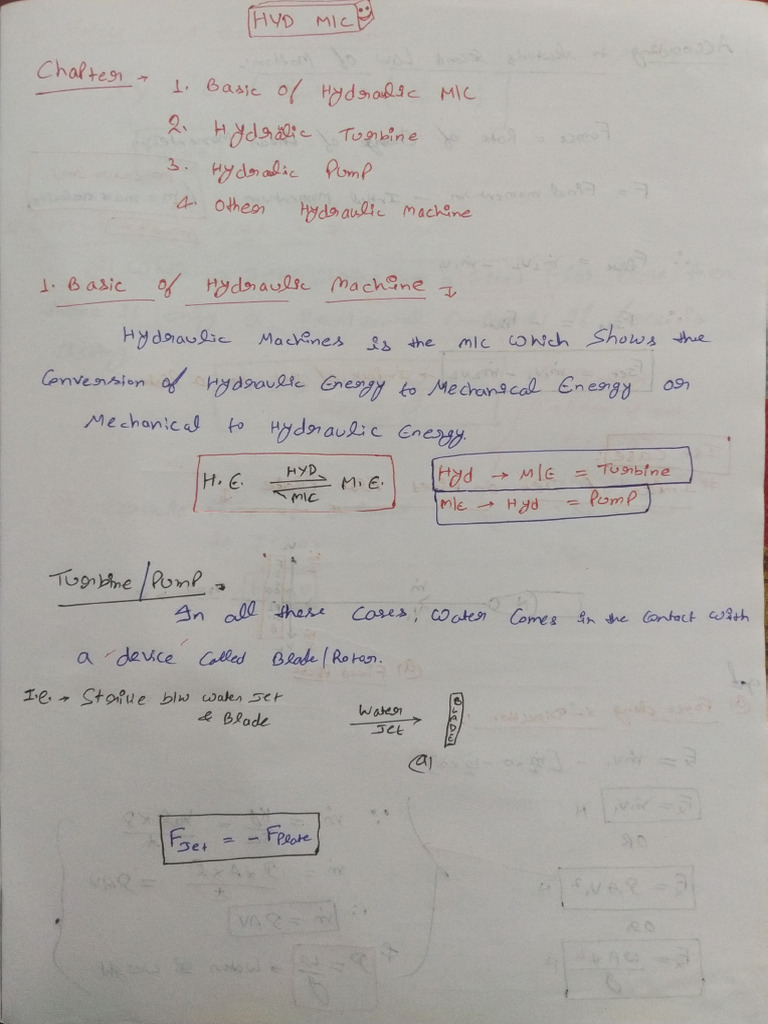 HYD M/C
Chapter →
1. Basic Of Hydraulic M/C
2. Hydralic Turbine
3. Hydralic Pump
4. Other Hydraulic Machine
1. Basic of Hydraulic Machine :-
Hydraulic Machines is the m/c which shows the
Conversion of Hydraulic Energy to Mechanical Energy or
Mechanical to Hydraulic Energy.
H.E. HYD ⇌ M/C M.E.
Hyd → M/E = Turbine
M/E → Hyd = Pump
Turbine/Pump →
In all these Cases, Water Comes in the Contact with
a device Called Blade/Rotar.
I.e. → Strike b/w water Jet
& Blade
Water Jet → BLADE
(a)
F Jet = - F Plate